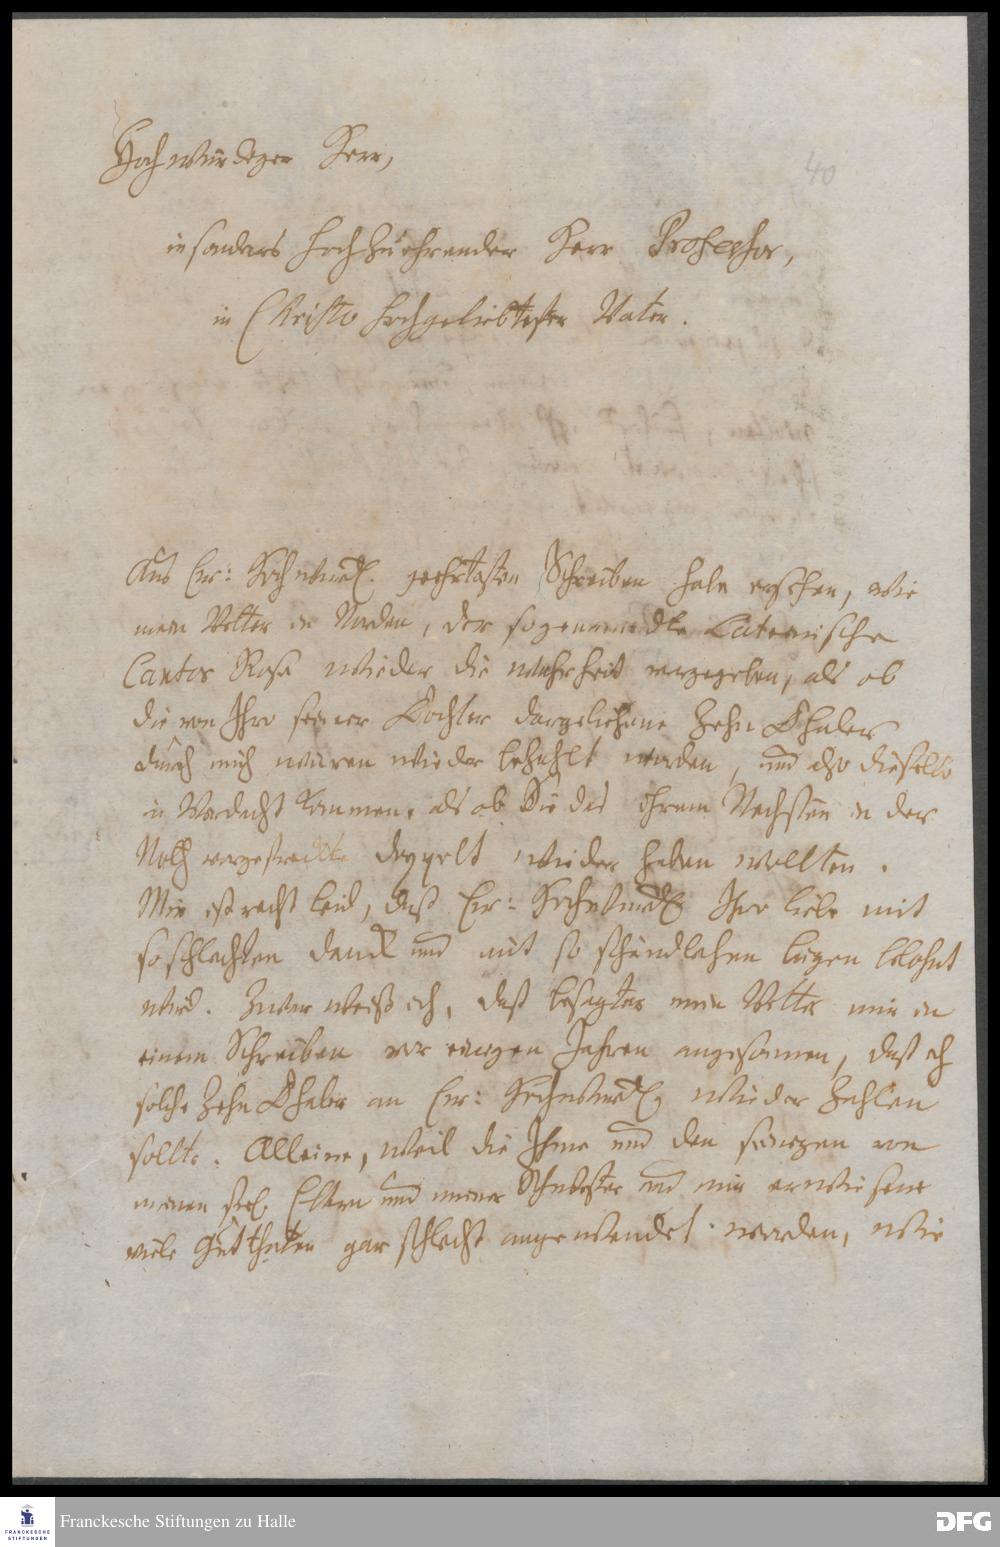 Hochwürdiger Herr,
40
insonders hochzuehrender Herr Professor,
in Christo hochgeliebtester Vater.
Aus Ew: Hochwürd. geehrtesten Schreiben habe ersehen, wie
mein Vetter in Norden, der sogenannte Lateinische
Cantor Rosa wieder die wahrheit vorgegeben, als ob
die von Ihro seiner Tochter dargeliehene Zehn Thaler
durch mich wären wieder bezahlt worden, und also dieselbe
in Verdacht kommen, als ob Sie das ihrem Nechsten in der
Noth vorgestreckte doppelt wieder haben wollten.
Mir ist recht leid, daß Ew: Hochwürd. Ihro liebe mit
so schlechten danck und mit so schändlichen lügen belohnt
wird. Zwar weiß ich, daß besagter mein Vetter mir in
einem Schreiben vor einigen Jahren angesonnen, daß ich
solche Zehn Thaler an Ew: Hochwürd. wieder zahlen
sollte. Alleine, weil die Ihme und den seinigen von
meinen seel. Eltern und meiner Schwester und mir erwiesene
viele Gutthaten gar schlecht angewendet worden, wie
FRANCKESCHE
STIFTUNGEN
Franckesche Stiftungen zu Halle
DFG